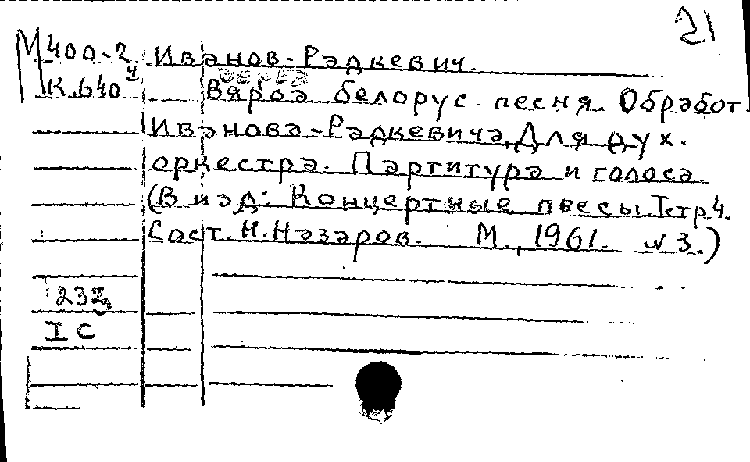 21
М400-2 Иванов-Радкевич.
К.640ч Вярба белорус. песня. Обработ.
Иванова-Радкевича, Для дух.
оркестра. Партитура и голоса
(В изд: Концертные пьесы. Тетр.4.
Сост. Н. Назаров. М., 1961. №3.)
232
IC